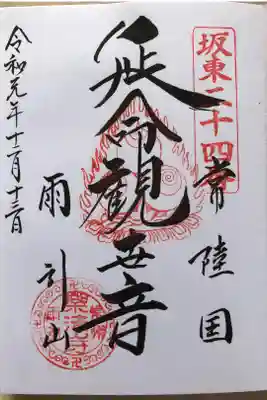 坂東二十四番
常陸国
延命観世音
雨引山
樂法寺
令和元年十一月十三日